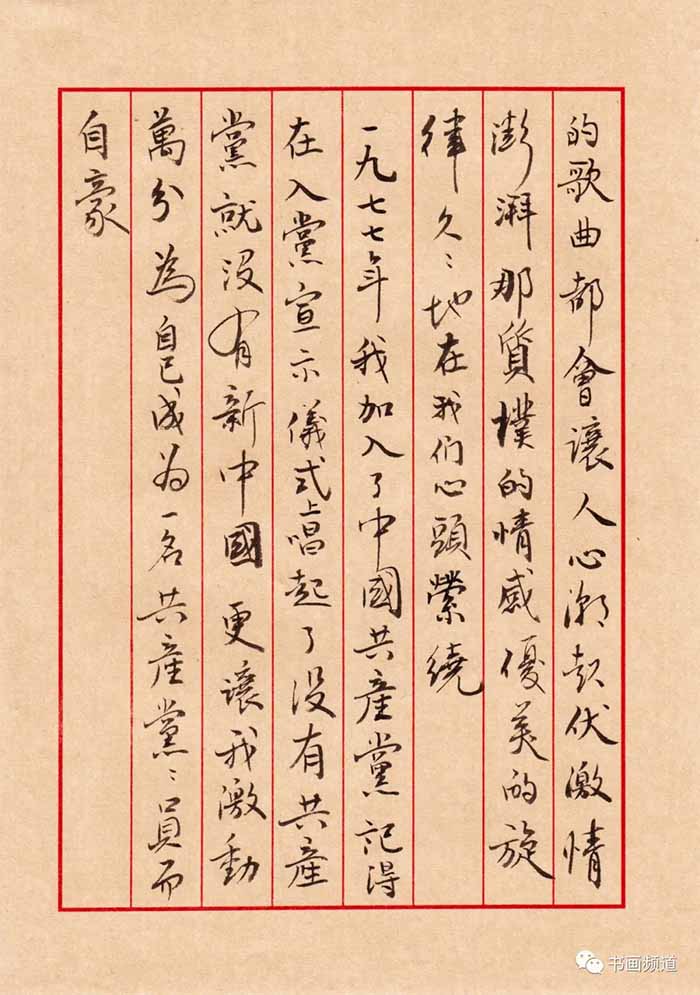 的歌曲都會讓人心潮起伏激情
澎湃那質樸的情感優美的旋
律久〻地在我们心頭縈繞
一九七七年我加入了中國共產黨記得
在入黨宣示儀式上唱起了沒有共產
黨就沒有新中國更讓我激動
萬分為自己成为一名共產黨〻員而
自豪
书画频道